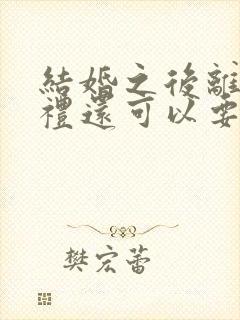 結婚之後離
禮還可以要
樊宏蕾